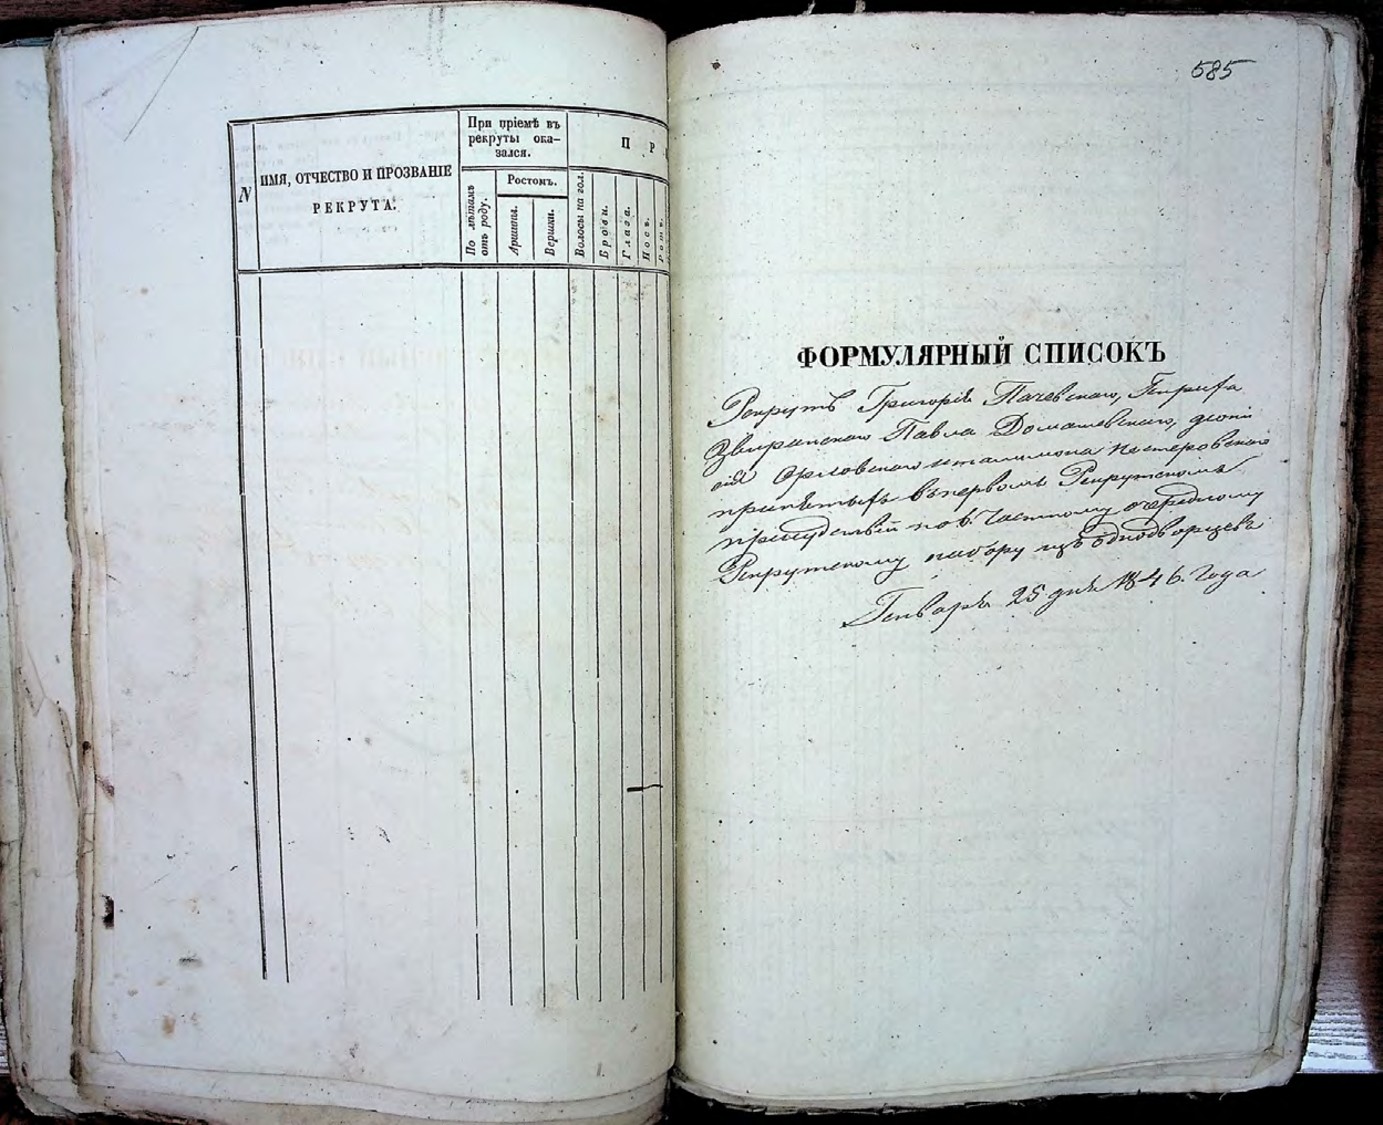 N
ИМЯ, ОТЧЕСТВО И ПРОЗВАНІЕ
РЕКРУТА.
При пріемѣ въ
рекруты ока-
зался.
По лѣтамъ
отъ роду.
Ростомъ.
Аршины.
Вершки.
П Р
Волосы на гол.
Брови.
Глаза.
Носъ.
Ротъ.
585
ФОРМУЛЯРНЫЙ СПИСОКЪ
Рекрутъ Григорій Пачевскаго,
Павла Домашевскаго,
Орловскаго Нестеровскаго
принятыхъ въ первомъ Рекрутскомъ
присудствіи по 6. частному очередному
Рекрутскому набору изъ однодворцевъ
Генваря 25 дня 1846. Года